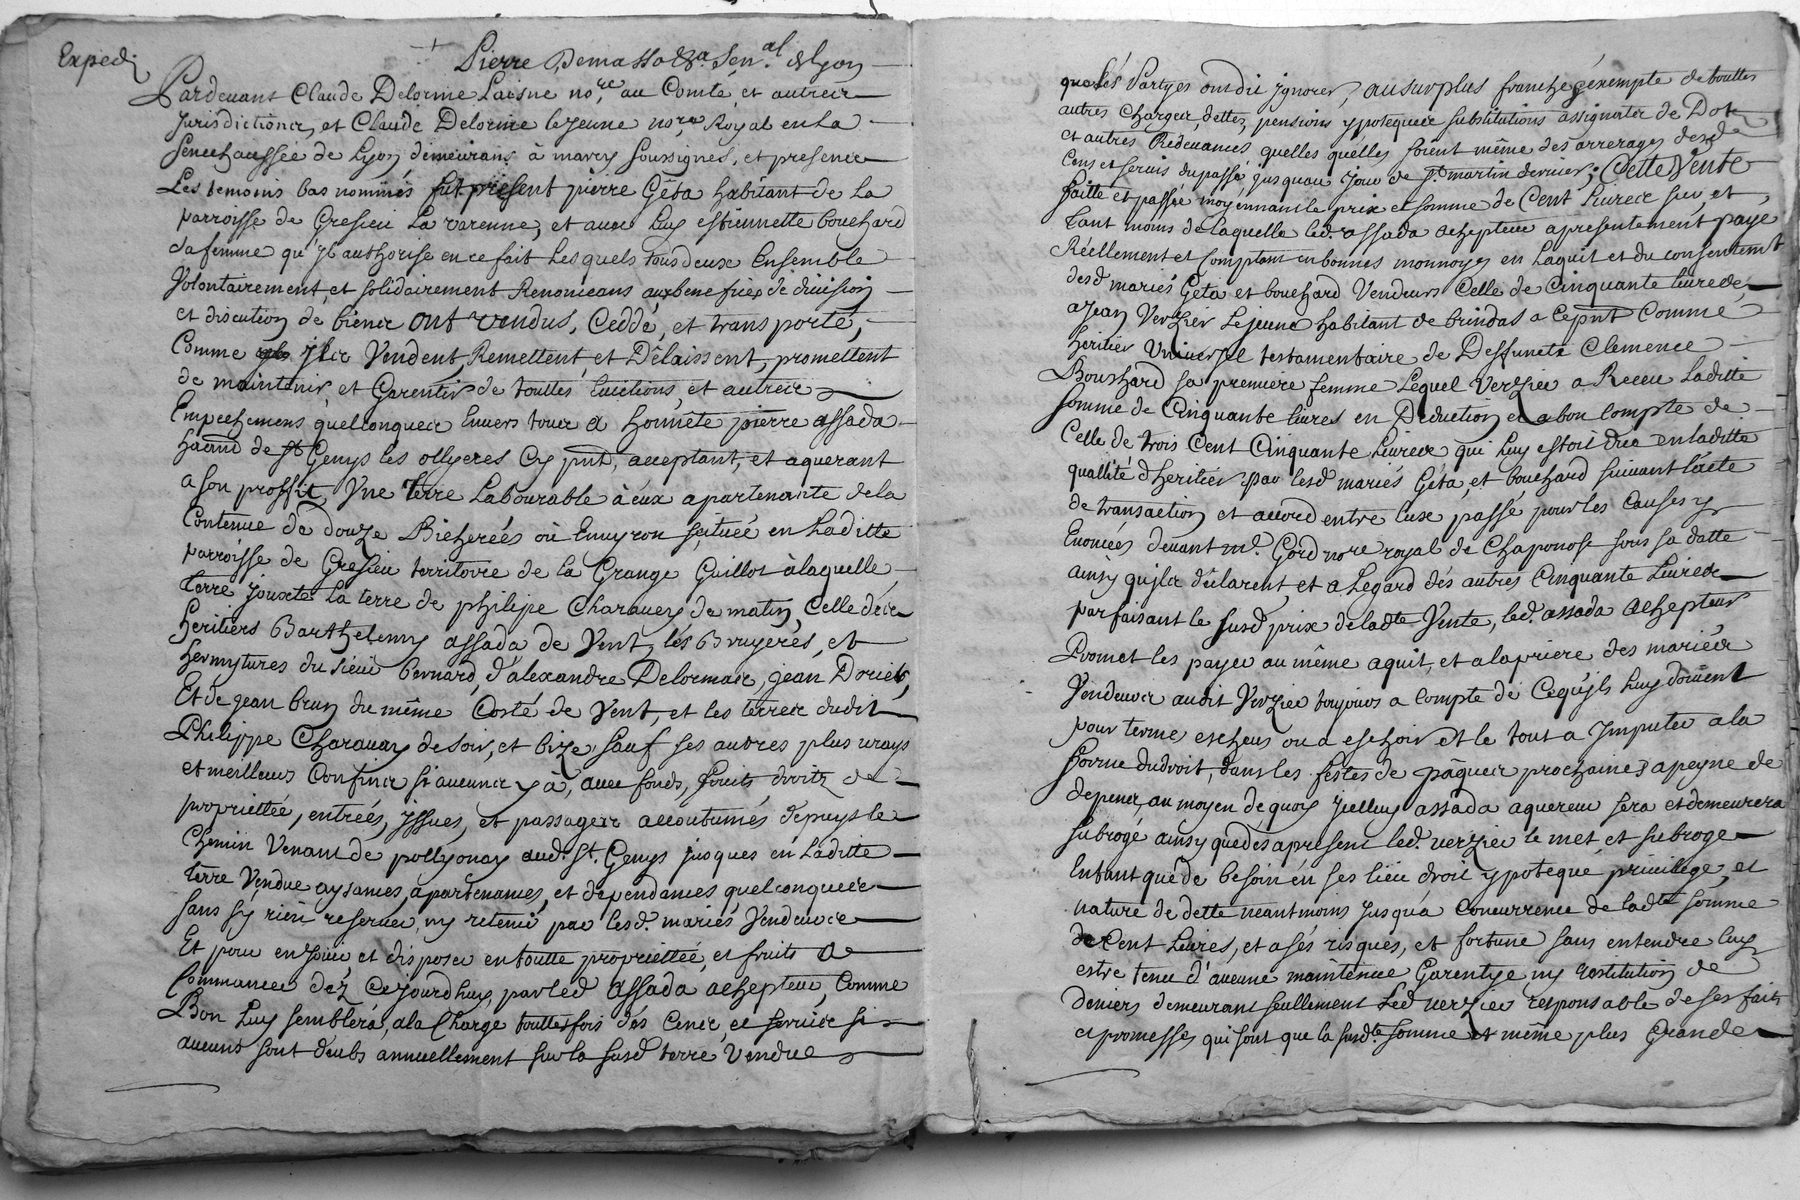 Expedi
Pierre Demasso &a. Sen.al de Lyon
Pardevant Claude Delorme Laisne no.re au Comté, et autrecr
Jurisdictioncr, et Claude Delorme le jeune no.re Royal en La
Senechaussée de Lyon demeurans à marcy soussignés, et presence
Les temoins bas nommés fut present pierre Géta habitant de La
parroisse de Gresieu La varenne, et avec Luy estiennette bouchard
sa femme qu'il authorise en ce fait Lesquels tous deux Ensemble
Volontairement, et solidairement Renonceans aux benefices de division
et discution de biencr ont vendus, Ceddé, et transporté,
Comme ilcr Vendent, Remettent, et Délaissent, promettent
de maintenir, et Garentir de touttes Evictions, et autrecr
Empechemens quelconquecr Envers toucr a honnête pierre assada
de st Genys les ollyeres Cy pnt, acceptant, et aquerant
a son proffit, Vne Terre Labourable à eux apartenante de la
Contenue de douze Bicherées ou Environ scituée en Laditte
parroisse de Gresieu territoire de la Grange Guillot à laquelle
terre jouxte La terre de philipe Charavay de matin, Celle des
heritiers Barthelemy assada de Vent, les Bruyeres, et
hermytures du sieur bernard, d'alexandre Delormacr, jean Doriet,
Et de jean brun du même Costé de Vent, et les terrecr dudit
Philippe Charavay de soir, et bize sauf ses autres plus vrays
et meilleurs Confincr si aucuncr y à, avec fonds, fruits droitz de
proprietée, entrées, issues, et passagecr accoutumés depuys le
Chemin Venant de pollyonay aud. st. Genys jusques en Laditte
terre Vendue aysances, apartenances, et dependances quelconquecr
sans s'y rien reserver, ny retenir par lesd. mariés Vendeurcr
Et pour en jouir et disposer en toutte proprietée, et fruits a
Commancer déz Cejourdhuy par led assada achepteur, Comme
Bon Luy semblera, a la Charge touttesfois des Cencr, et servicr si
aucuns sont deubs annuellement sur la susd terre Vendue
que les Partyes ont dit ignorer, au surplus franche, exempte de touttes
autres Chargecr, dettes, pensions ypotequecr substitutions assignatcr de Dot
et autres Redevances quelles quelles soient même des arrerages desd
Cens et servis du passé jusquau jour de st. martin dernier; Cette Vente
faitte et passée moyennant le prix et somme de Cent Livrecr sur, et
tant moins de laquelle led. assada achepteur a presentement payé
Réellement et Comptant en bonnes monnoyes en Laquit et du consentemt
desd mariés Géta et bouchard Vendeurs Celle de Cinquante livrecr
a jean Verzier le jeune habitant de brindas a Cepnt Comme
héritier Universel testamentaire de Deffuncte Clemence
Bouchard sa premiere femme Lequel Verzier a Receu Laditte
somme de Cinquante livres en Deduction et a bon Compte de
Celle de trois Cent Cinquante Livrecr qui Luy estoit due en laditte
quallité d'heritier par lesd mariés Géta, et bouchard suivant l'acte
de transaction et accord entre Eux passé pour les Causes y
Enoncées devant me. Gord nore royal de Chaponost sous sa datte
ainsy quilcr déclarent, et a Legard dés autres Cinquante Livrecr
parfaisant le susd prix de ladte Vente, led. assada achepteur
Promet les payer au même aquit, et a la priere des mariécr
Vendeurcr audit Verzier toujours a Compte de Cequ'ils Luy doivent
pour terme escheus ou a eschoir et le tout a Imputer a la
forme du droit, dans les festes de pâquecr prochaines a peyne de
depencr, au moyen de quoy Icelluy assada aquereur sera et demeurera
subrogé ainsy que dés apresent led. verzier le met, et subroge
Entant que de besoin en ses lieu droit ypoteque privilege, et
nature de dette neantmoins jusqu'a Concurrence de ladte somme
de Cent Livres, et a sés risques, et fortune sans entendre luy
estre tenu d'aucune maintenue Garentye ny restitution de
deniers demeurant seullement Led verzier responsable de ses faits
et promesses qui sont que la susdte somme et même plus Grande